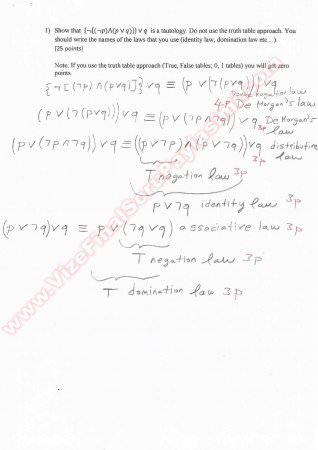 1) Show that {¬[(¬p)∧(p∨q)]}∨q is a tautology. Do not use the truth table approach. You
should write the names of the laws that you use (identity law, domination law etc…).
[25 points]
Note: If you use the truth table approach (True, False tables; 0, 1 tables) you will get zero
points.
{¬[(¬p)∧(p∨q)]}∨q ≡ (p∨(¬(p∨q)))∨q
Double negation law
4P De Morgan's law
(p∨(¬(p∨q)))∨q ≡ (p∨(¬p∧¬q))∨q De Morgan's
3p law
(p∨(¬p∧¬q))∨q ≡ ((p∨¬p)∧(p∨¬q))∨q distributive
3p law
T negation law 3p
p∨¬q identity law 3p
(p∨¬q)∨q ≡ p∨(¬q∨q) associative law 3p
T negation law 3p
T domination law 3p
www.VizeFinalSoruPaylasimi.com